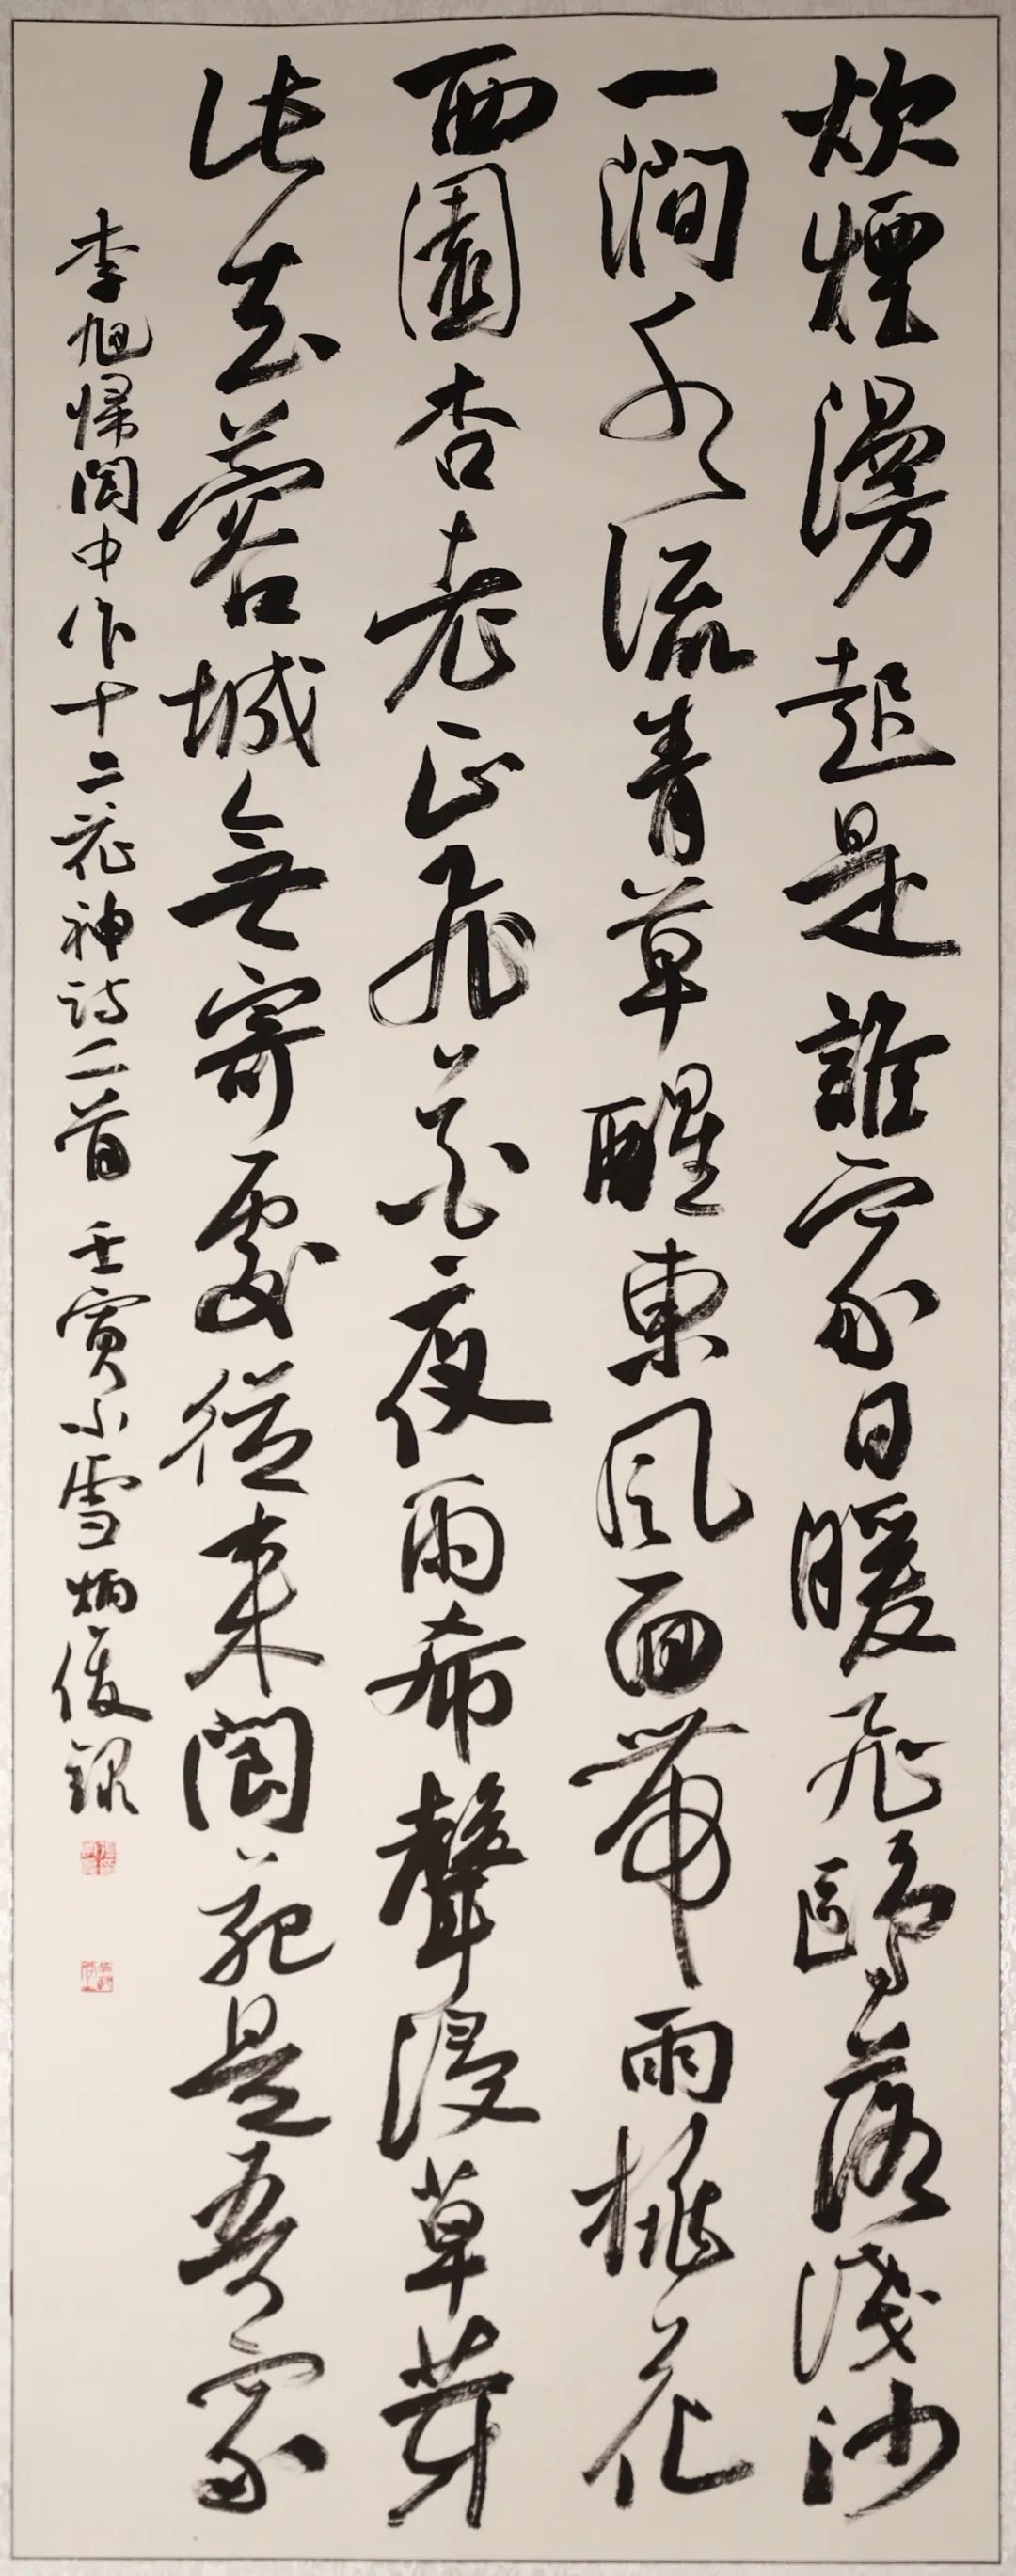 炊煙漫起是誰家日暖飛鷗落淺沙
一澗水流青草醒東風面帶雨桃花
西園杏老正飛花夜雨希聲浸草芽
此去蓉城無寄處從來閬苑是吾家
李旭歸閬中作十二花神詩二首 壬寅小雪炳俊錄